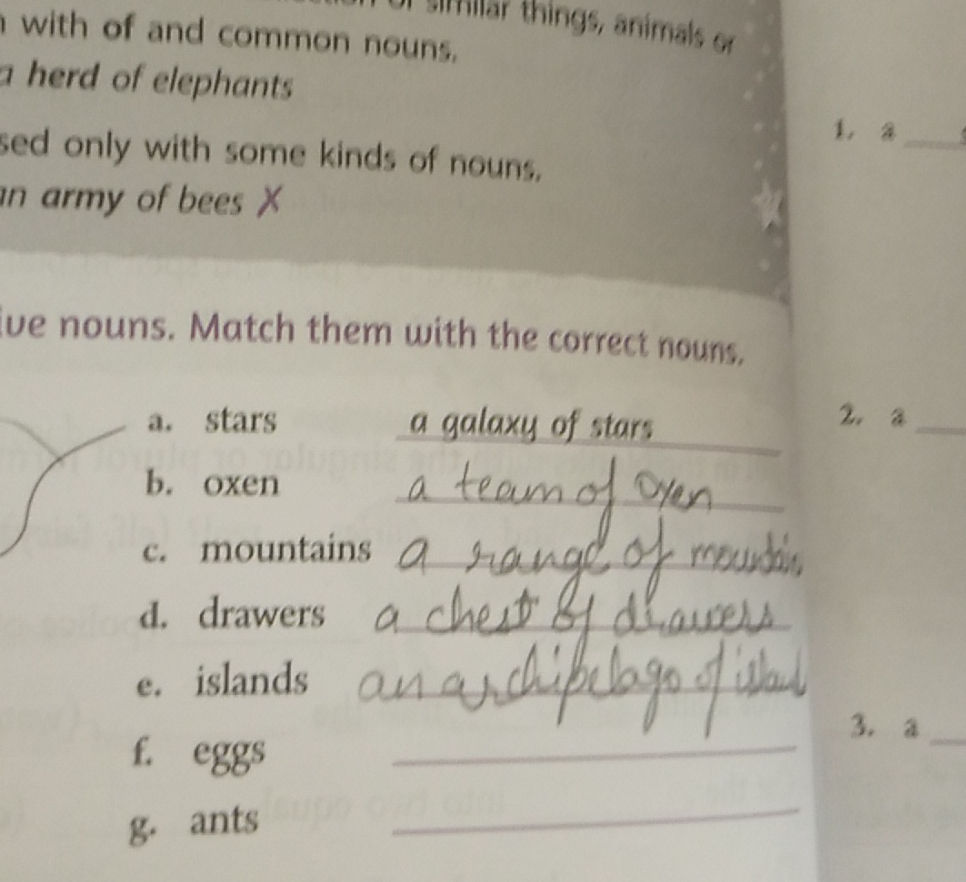 similar things, animals or
with of and common nouns.
a herd of elephants
sed only with some kinds of nouns.
an army of bees X
ive nouns. Match them with the correct nouns.
a. stars a galaxy of stars
b. oxen a team of oxen
c. mountains a range of mountains
d. drawers a chest of drawers
e. islands an archipelago of island
f. eggs
g. ants
1. a
2. a
3. a